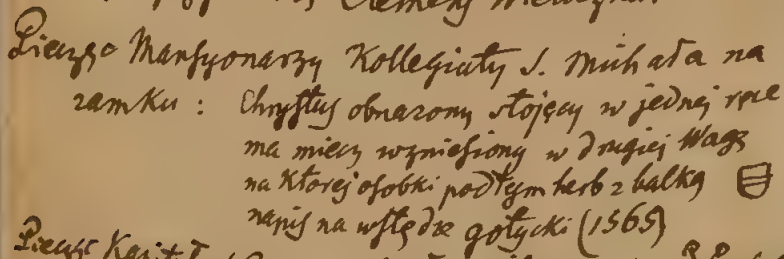 Clemens
Pieczęć Mansyonarzy Kollegiaty S. Michała na
zamku : Chrystus obnażony stojęcy w jednej ręce
ma miecz wzniesiony w drugiej Wagę
na Której osobki pod tym herb z balką
napis na wstędze gotycki (1565)
Pieczęć